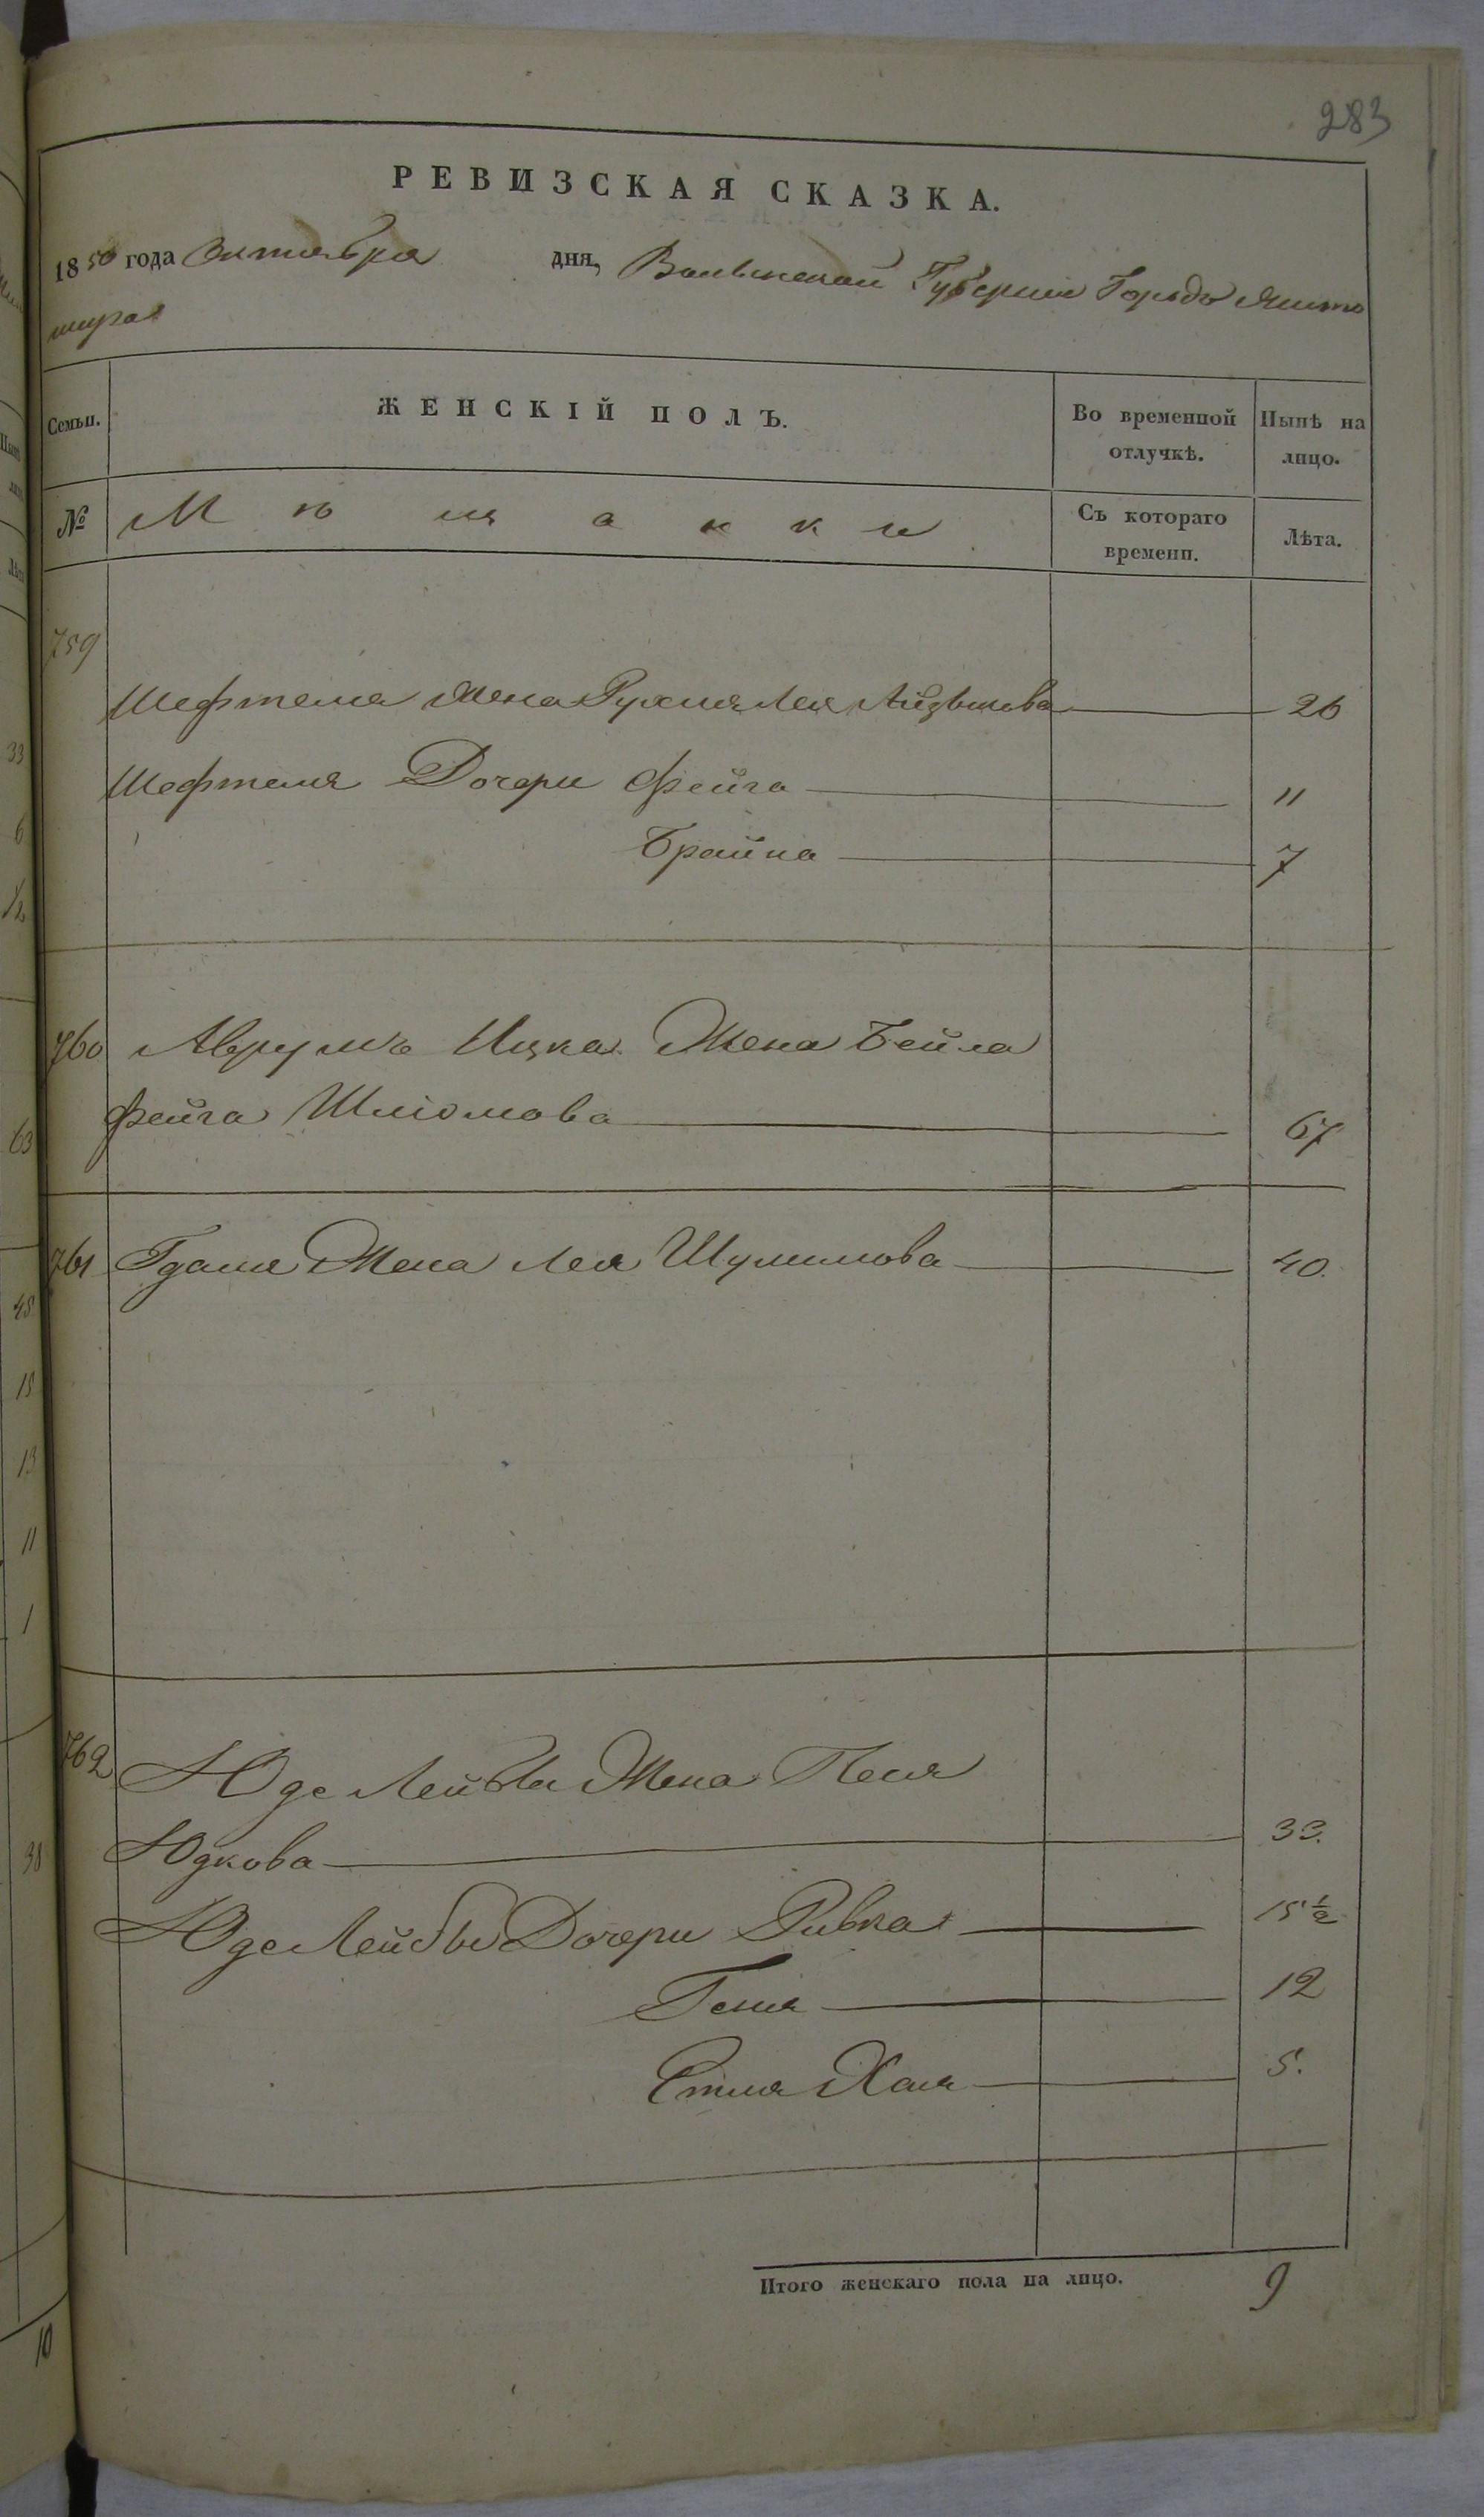 283
РЕВИЗСКАЯ СКАЗКА.
1850 года Октября дня, Волынской Губернии Городъ Жито
мира
Семьи. ЖЕНСКІЙ ПОЛЪ. Во временной отлучкѣ. Нынѣ на лицо.
№ Мѣщанки Съ котораго времени. Лѣта.
759
Шефтеля Жена Рухля Лея 26
Шефтеля Дочери Фейга 11
Брайна 7
760 Аврумъ Ицка Жена Бейла
Фейга Шліомова 67
761 Гдаля Жена Лея Шулимова 40.
762 Юде Лейбы Жена Песя
Юдкова 33.
Юде Лейбы Дочери Ривка 15 ½
Геня 12
Етля Хая 5.
Итого женскаго пола на лицо. 9
33
6
½
63
45
15
13
11
1
38
10